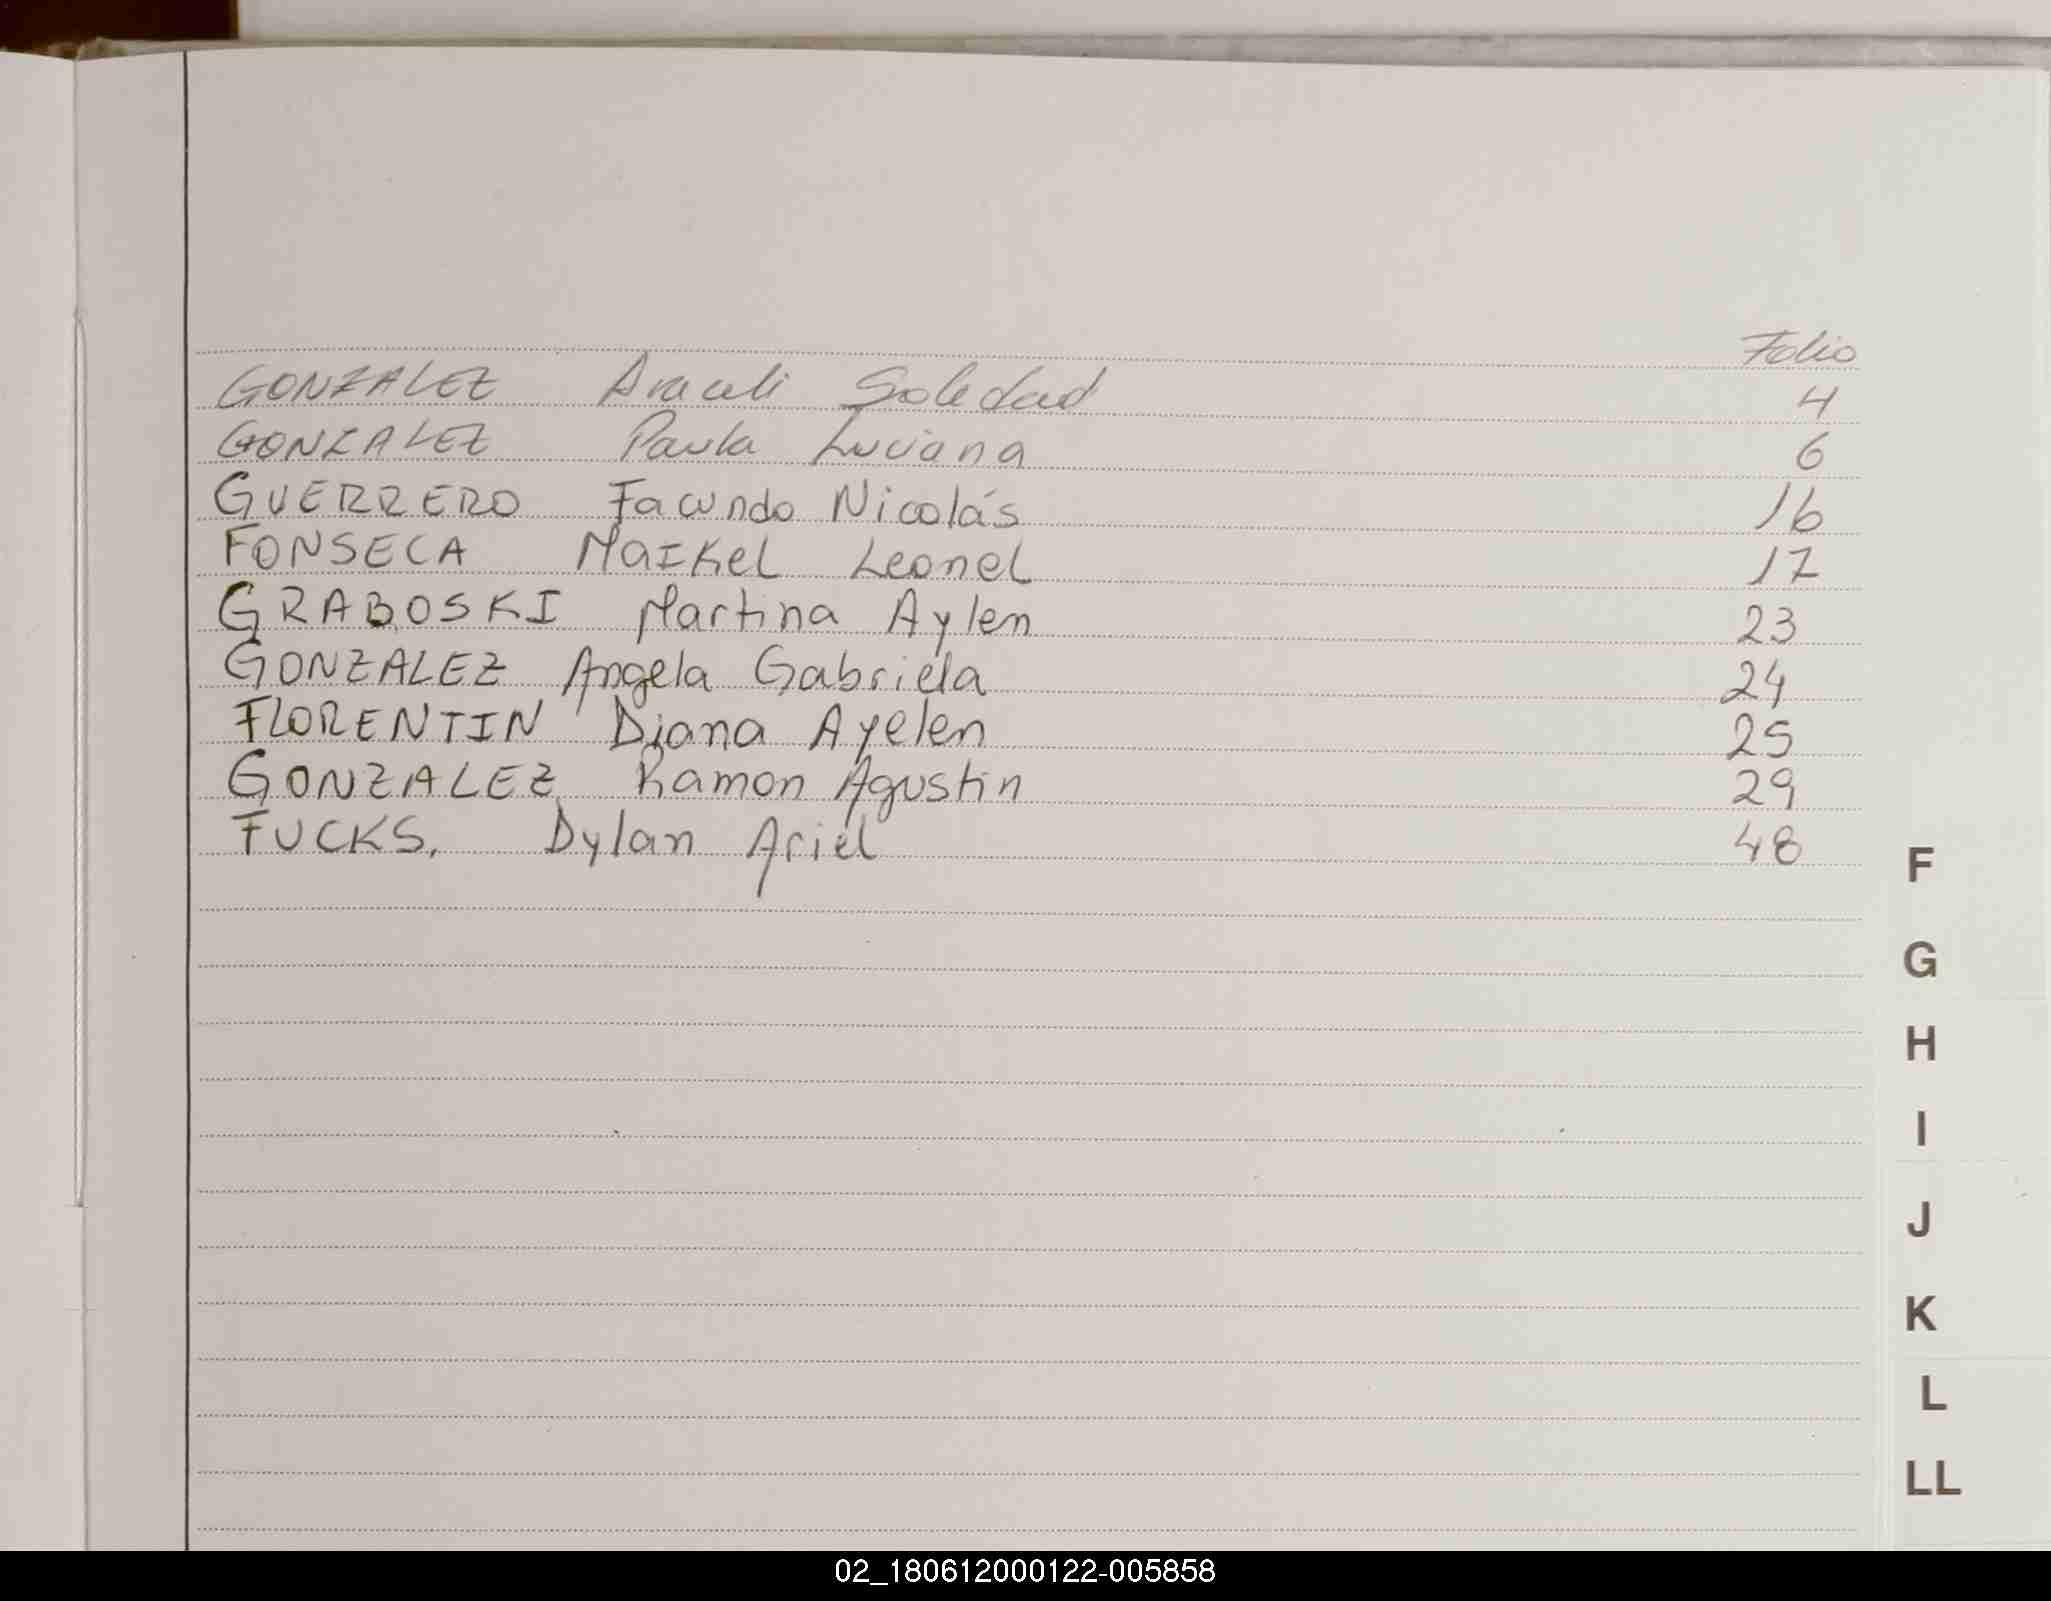 Folio
GONZALEZ Araceli Soledad 4
GONZALEZ Paula Luciana 6
GUERRERO Facundo Nicolás 16
FONSECA Maikel Leonel 17
GRABOSKI Martina Aylen 23
GONZALEZ Angela Gabriela 24
FLORENTIN Diana Ayelen 25
GONZALEZ Ramon Agustin 29
FUCKS, Dylan Ariel 48
F
G
H
I
J
K
L
LL
02_180612000122-005858